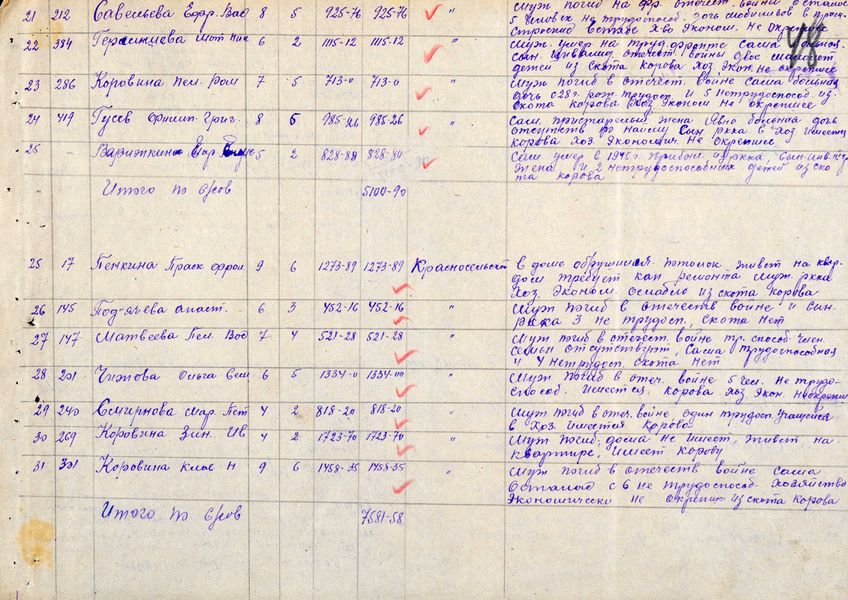 21 212 Савельева Ефр. Вас 8 5 925-76 925-76 " муж погиб на фр. отечест. войны остались
5 человек не трудоспособ. дочь
в хоз-во эконом. не окрепшее
22 384 6 2 1115-12 1115-12 " муж. умер на труд. фронте сама больная
сын инвалид отечест. войны двое
детей из скота корова хоз. экон. не окрепшее
23 286 Коровина Пел. Ром 7 5 713-0 713-0 " муж погиб в отечест. войне сама больная
дочь с 28 г. рож трудосп и 5 нетрудоспособ. из
скота корова хоз эконом не окрепшее
24 419 Гусев Филип. Григ. 8 6 985-26 985-26 " Сам. престарелый жена больная дочь
отсутств по найму сын ркка в хоз имеет
корова хоз экономич не окрепшее
25 - Ефр. 5 2 828-80 828-80 " Сам умер в 1945 г. ркка, сын инв.
жена и 2 нетрудоспособных детей из ско
та корова
Итого по с/сов 5100-90
25 17 Пенкина Праск Фрол 9 6 1273-89 1273-89 Красносельский в доме обрушился потолок живет на квар.
дом требует кап ремонта муж. ркка
хоз. эконом. ослабло из скота корова
26 145 Подъячева Анаст. 6 3 452-16 452-16 " муж погиб в отечеств войне и сын.
3 не трудосп, скота нет
27 147 Матвеева Пел. Вас 7 4 521-28 521-28 " муж погиб в отечест. войне тр. способ. член.
семьи отсутствут. сама трудоспособная
и 4 нетрудосп. скота нет
28 201 Чижова Ольга Сем 6 5 1334-0 1334-00 " муж погиб в отеч. войне 5 чел. не трудо-
способ. имеется корова хоз экон. неокрепше
29 240 Смирнова Мар. Пет 4 2 818-20 818-20 " муж погиб в отеч. войне один трудосп. учащейся
в хоз. имеется корова
30 269 Коровина Зин. Ив 4 2 1723-70 1723-70 " муж погиб; дома не имеет, живет на
квартире, имеет корову
31 301 Коровина Клав Н 9 6 1458-35 1458-35 " муж погиб в отечеств войне сама
осталась с 6 не трудоспособ. хозяйство
экономически не окрепш из скота корова
Итого по с/сов 7581-58